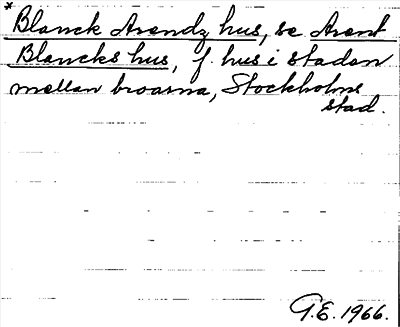 *
Blanck Arendz hus, se Arent
Blancks hus, f. hus i staden
mellan broarna, Stockholms
stad.
G.E. 1966.